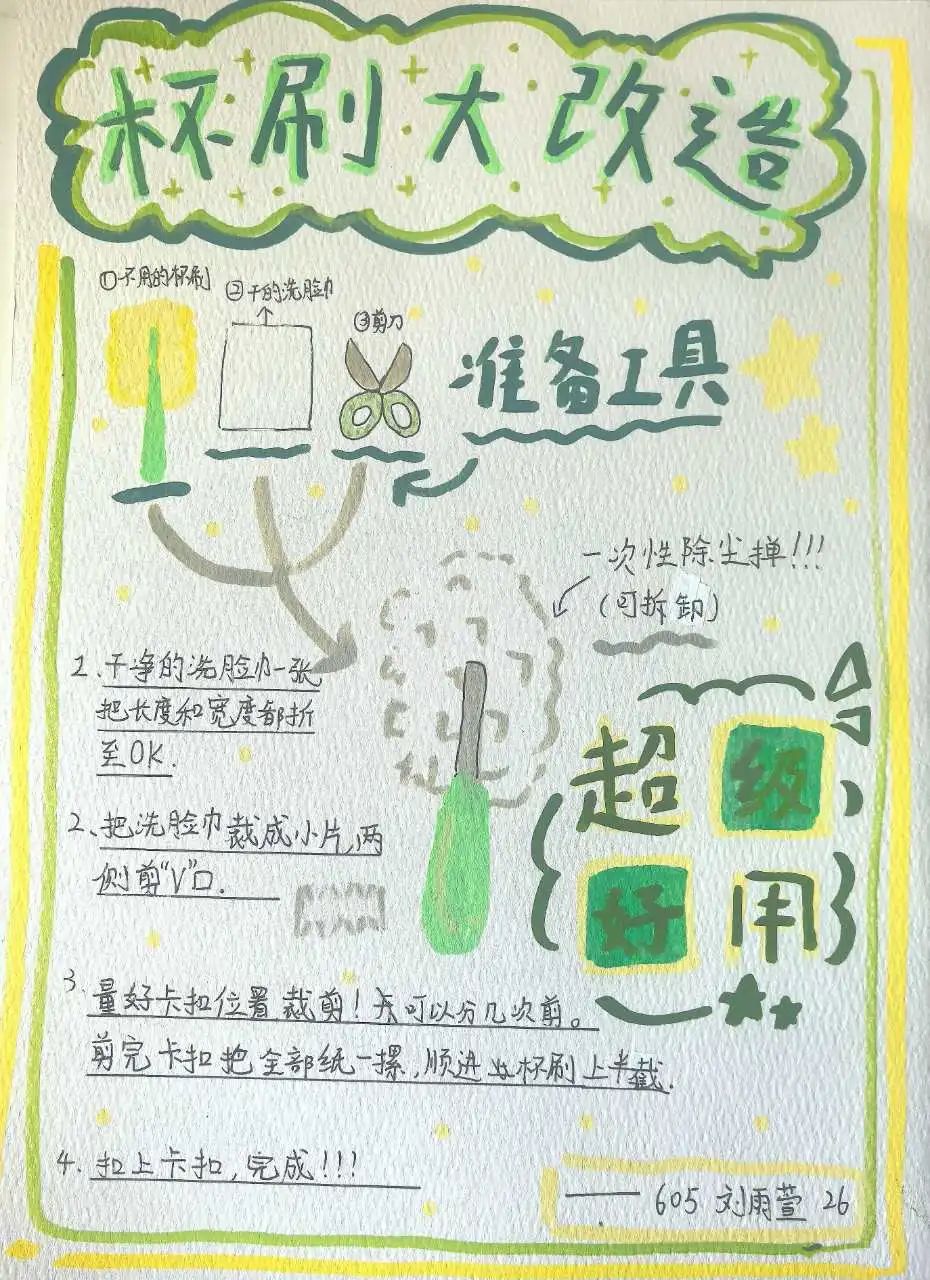 杯刷大改造
①不用的杯刷
②干的洗脸巾
③剪刀
准备工具
一次性除尘掸!!!
(可拆卸)
1、干净的洗脸巾一张
把长度和宽度都折
至OK.
2、把洗脸巾裁成小片,两
侧剪“V”口.
超级
好用
3、量好卡扣位置裁剪!可以分几次剪。
剪完卡扣把全部纸一摞,顺进杯刷上半截.
4、扣上卡扣,完成!!!
—— 605 刘雨萱 26